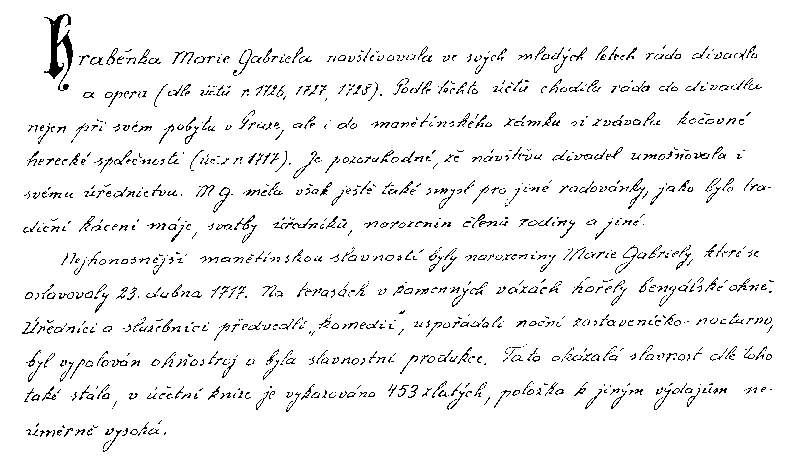 Hraběnka Marie Gabriela navštěvovala ve svých mladých letech ráda divadlo
a opera (dle účtů r. 1726, 1727, 1728). Podle těchto účtů chodila ráda do divadla
nejen při svém pobytu v Praze, ale i do manětínského zámku si zvávala kočovné
herecké společnosti (úč. z r. 1717). Je pozoruhodné, že návštěvu divadel umožňovala i
svému úřednictvu. M G. měla však ještě také smysl pro jiné radovánky, jako bylo tra-
diční kácení máje, svatby úředníků, narozenin členů rodiny a jiné.
Nejhonosnější manětínskou slavností byly narozeniny Marie Gabriely, které se
oslavovaly 23. dubna 1717. Na terasách v kamenných vázách hořely bengálské ohně.
Úředníci a služebníci předvedli „komedii", uspořádali noční zastaveníčko-nocturno,
byl vypalován ohňostroj a byla slavnostní produkce. Tato okázalá slavnost dle toho
také stála, v účetní knize je vykazováno 453 zlatých, položka k jiným výdajům ne-
úměrně vysoká.